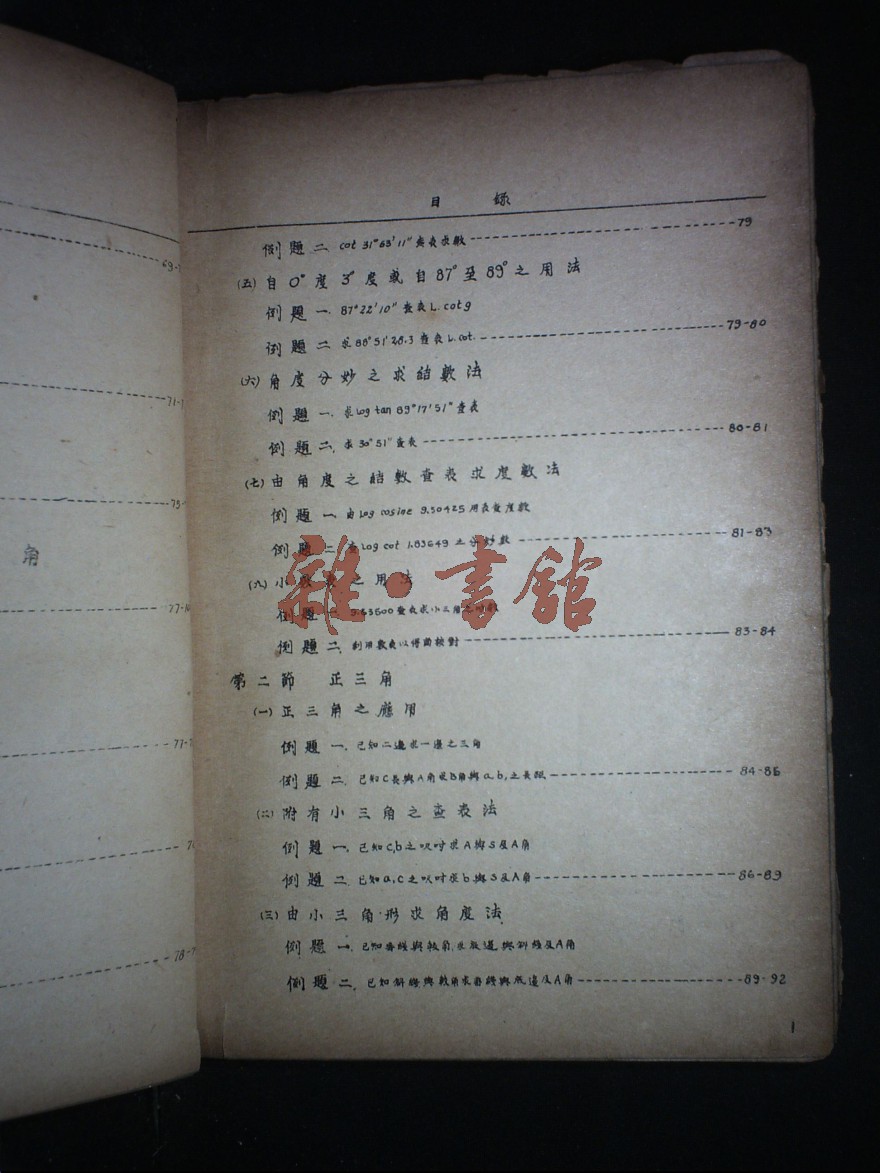 69-7
71-7
75-
角
77-
77-7
78-7
目 錄
例題二 cot 31°63'11"查表求數 79
(五)自0°度3°度或自87°至89°之用法
例題一. 87°22'10"查表L.cotg
例題二 求88°51'28.3查表L.cot. 79-80
(六)角度分妙之求結數法
例題一. 求Log tan 89°17'51"查表
例題二. 求30°51"查表 80-81
(七)由角度之結數查表求度數法
例題一. 由Log cosine 9.50425用表查度數
例題二 Log cot 1.83649之分妙數 81-83
(八)小數表之用法
例題一 9.63600查表求小三角
例題二. 利用數表以得曲線對 83-84
第二節 正三角
(一)正三角之應用
例題一. 已知二邊求一邊之三角
例題二. 已知C長與A角求B角與a.b.之長短 84-86
(二)附有小三角之查表法
例題一. 已知c,b之呎吋求A與S及A角
例題二 已知a,c之呎吋求b與S及A角 86-89
(三)由小三角形求角度法
例題一. 已知 線與 角,求底邊與斜線及A角
例題二. 已知斜線與 角求 線與底邊及A角 89-92
1
雜·書館